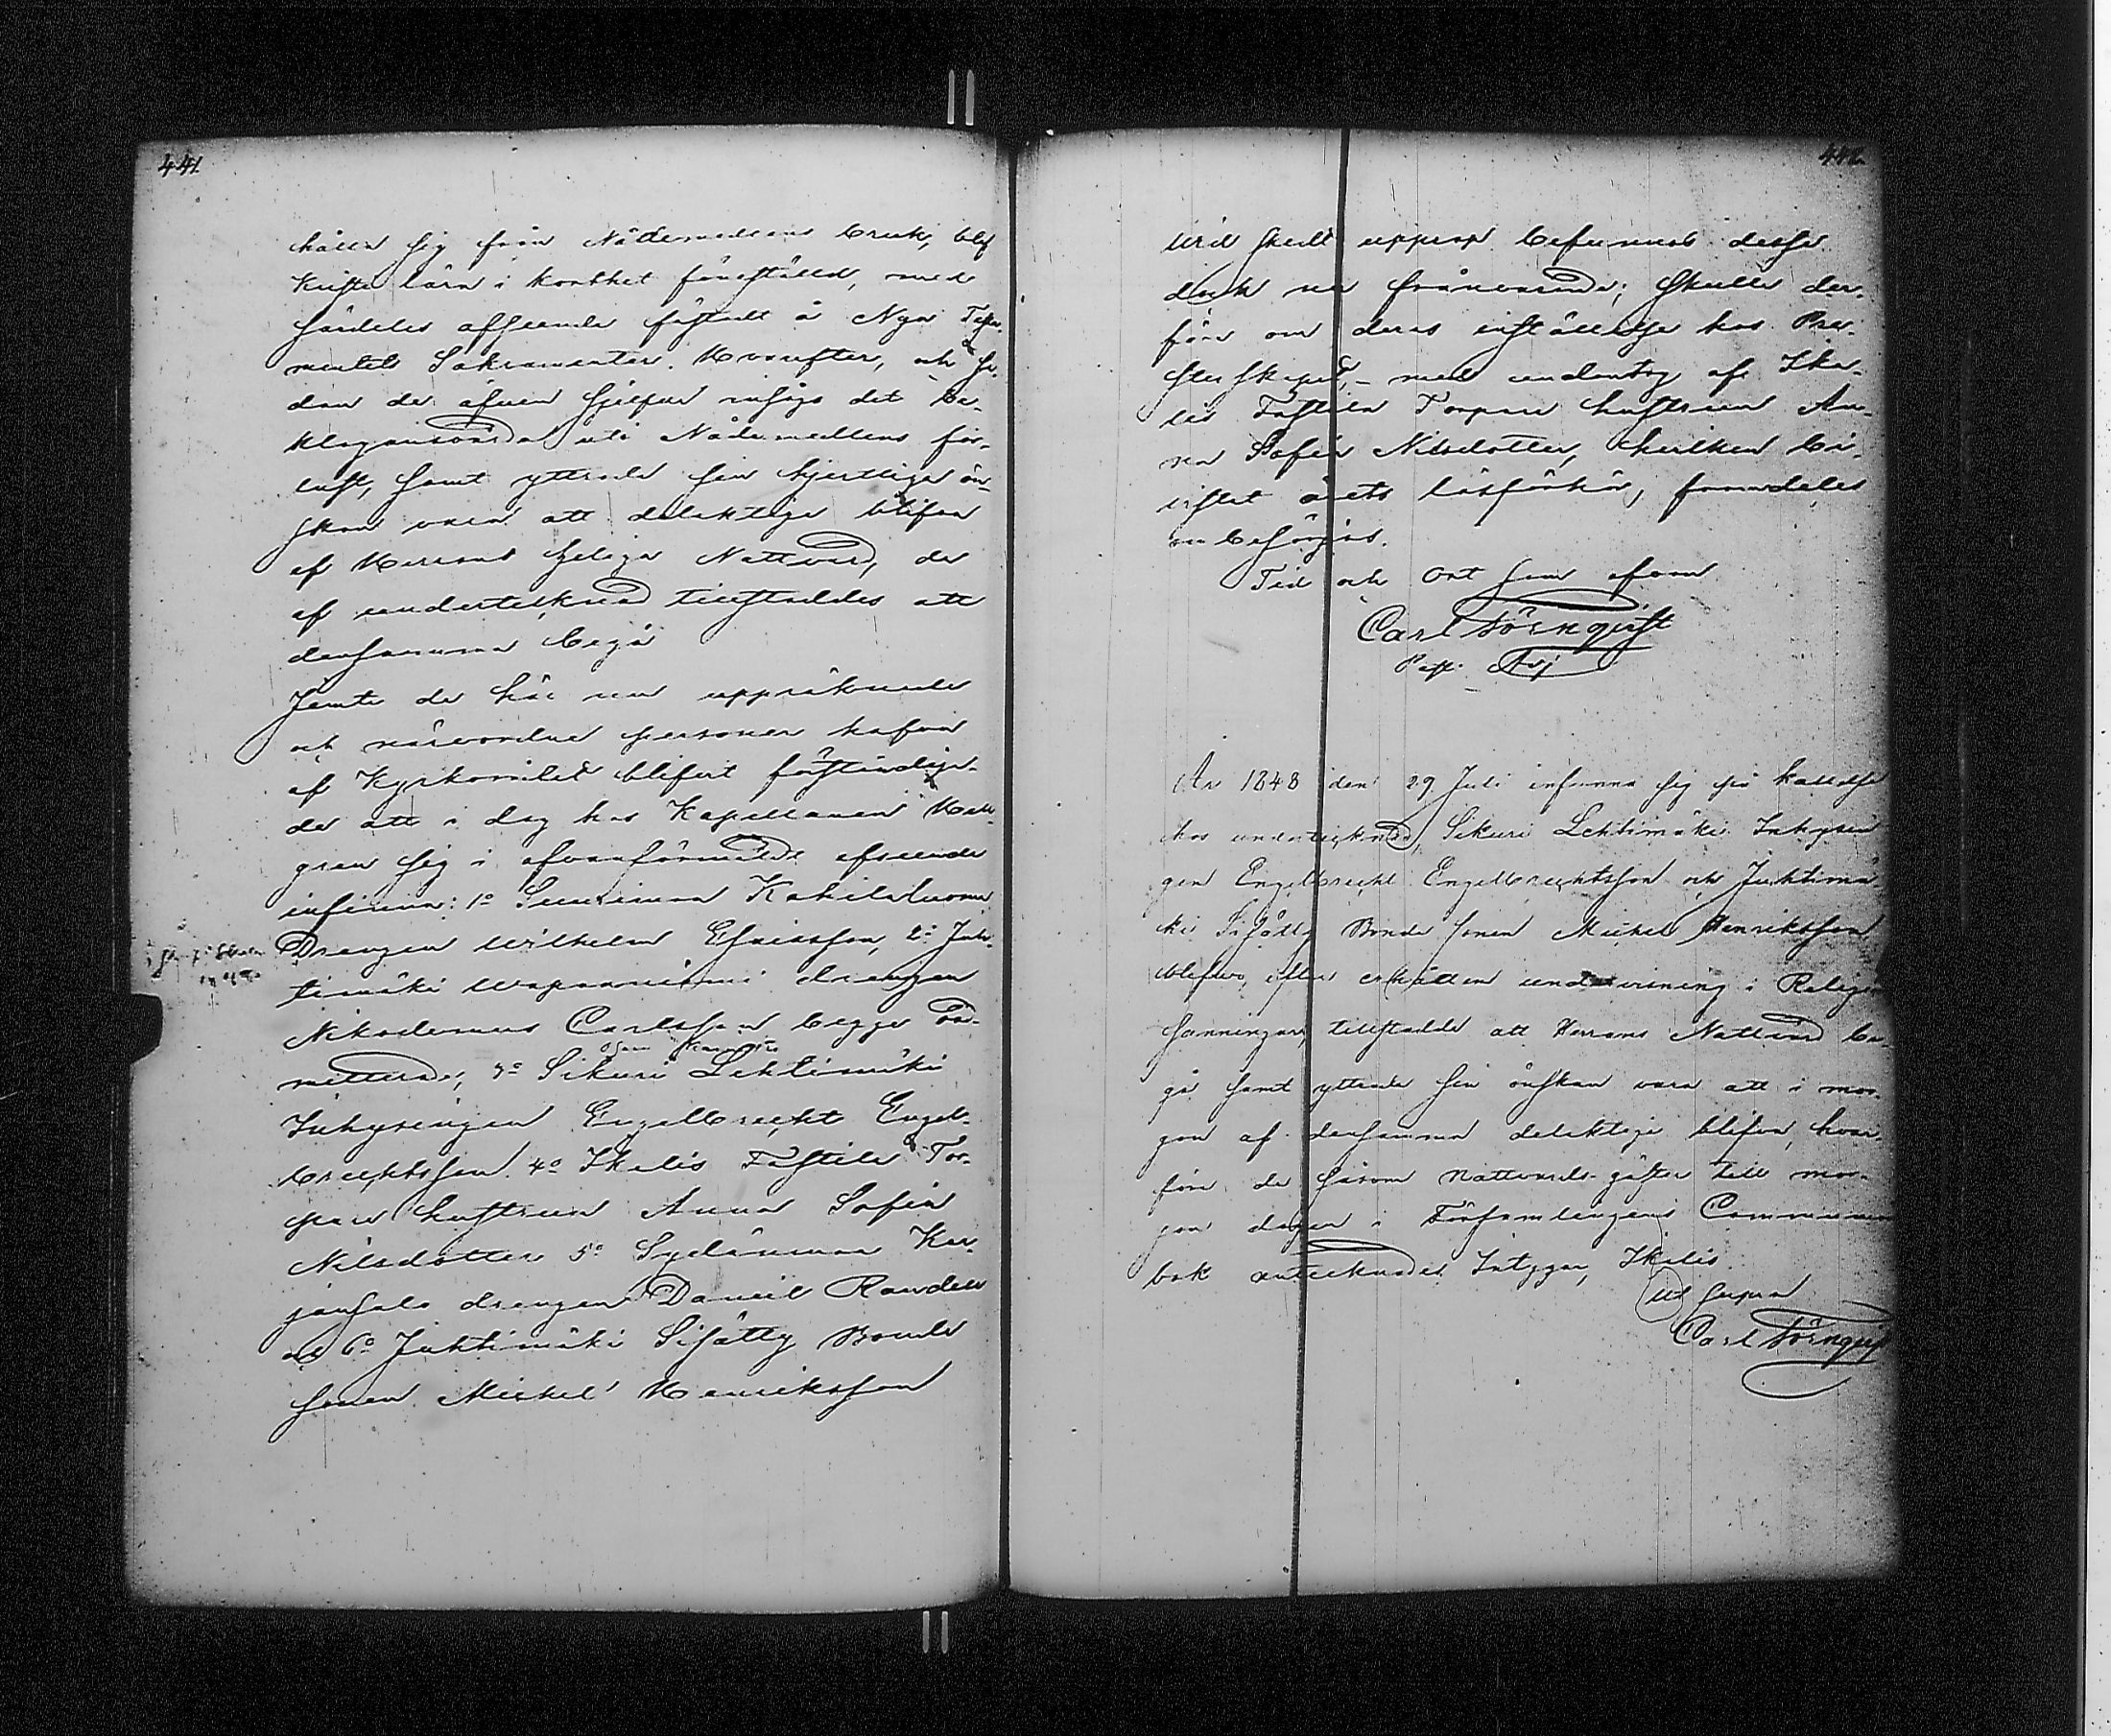 441.
hålla sig från Nådemedlens bruk, blef
Kristi lära i korthet föreställd, med
särdeles afseende fästadt å Nya Testa-
mentets Sakramenter. Hvarefter, och se-
dan de äfven sjelfve insågo det be-
klagansvärda uti Nådemedlens för-
lust, samt yttrade sin hjertliga ön-
skan vara att delaktige blifva
af Herrans heliga Nattvard, de
af undertecknad tillstaddes att
densamma begå
Jemte de här nu uppräknade
och närvarande personer hafva
af Kyrkorådet blifvit förständiga-
de att i dag hos Kapellanen Hall-
gren sig i ofvanförmälde afseende
infinna: 1o Luoma
Drengen Wilhelm Esaiasson, 2o Juk-
timäki drengen
Nikodemus Carlsson begge
3o Sikuri Lehtimäki
Inhysingen Engelbrecht Engel-
brechtsson 4o Ikalis Tor-
pare hustrun Anna Sofia
Nilsdotter 5o Kar-
drengen Daniel
och 6o Juktimäki Sisätty Bonde
sonen Mickel Henriksson
442
vid skedt upprop befunnos desse
dock nu frånvarande; skulle der-
före om deras inställelse hos Pre-
sterskapet, – med undantag af Ika-
lis Torpare hustrun An-
na Sofia Nilsdotter, hvilken
årets läsförhör, framdeles
besörjas.
Tid och Ort som ofvan
Carl Törnqvist
Past: Adj
År 1848 den 29 Juli infunno sig på kallelse
hos undertecknad, Sikuri Lehtimäki Inhysin-
gen Engelbrecht Engelbrechtsson och Juktimä-
ki Sisätty Bonde sonen Mickel Henriksson
blefvo, efter erhållen undervisning i Religions
sanningar, tillstadde att Herrans Nattvard be-
gå samt yttrade sin önskan vara att i mor-
gon af densamma delaktige blifva, hvar-
före de såsom Nattvards-gäster till mor-
gon dagen i Församlingens Communion
bok antecknades. Intygar, Ikalis
Ut supra
Carl Törnqvist